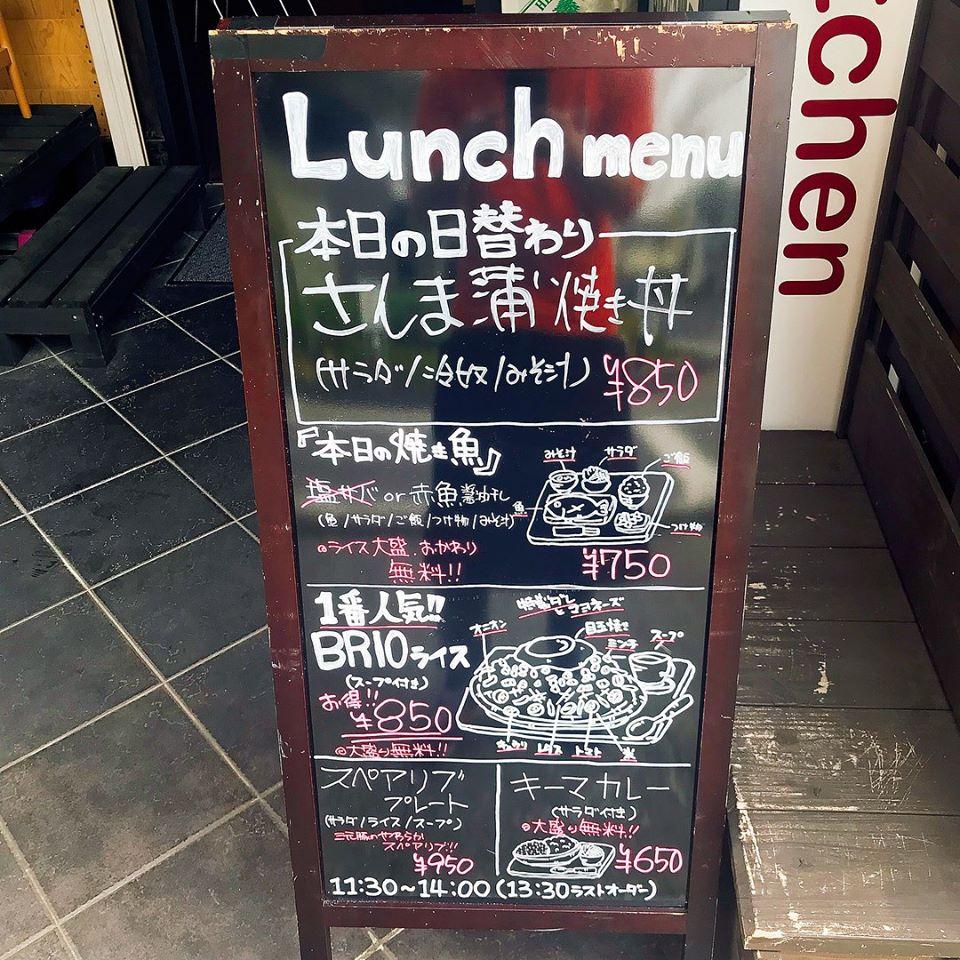 Lunch menu
本日の日替わり
さんま蒲焼き丼
(サラダ/冷奴/みそ汁) ¥850
『本日の焼き魚』
塩サバ or 赤魚醤油干し
(魚/サラダ/ご飯/つけ物/みそ汁)
◎ライス大盛、おかわり
無料!!
みそ汁 サラダ ご飯
魚
つけ物
¥750
1番人気!!
BRIOライス
(スープ付き)
お得!!
¥850
◎大盛り無料!!
特製ダレ
とマヨネーズ
オニオン 目玉焼き
ミンチ スープ
レタス トマト 米
スペアリブ
プレート
(サラダ/ライス/スープ)
三元豚のやわらか
スペアリブ!!
¥950
キーマカレー
(サラダ付き)
◎大盛り無料!!
¥650
11:30~14:00(13:30ラストオーダー)
tchen